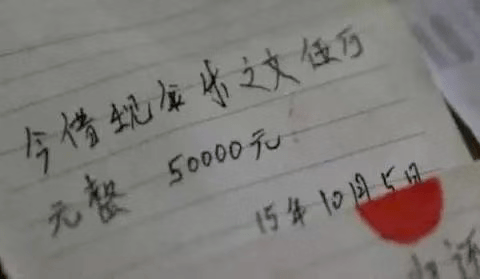 今借现金朱之文伍万
元整 50000元
15年10月5日